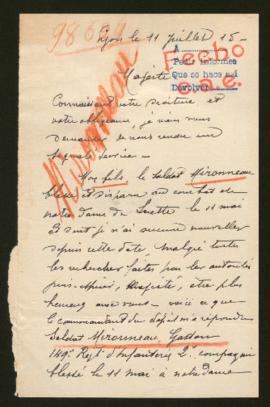 Lyon le 11 juillet 15 -
A
Pedir informes
Que se hace
Devolver
Fecho
Majesté
Connaissant votre droiture et
votre obligeance, je viens vous
demander de nous rendre un
signalé service -
Mironneau
Mon fils le soldat Mironneau
blessé et disparu au combat de
notre dame de Lorette le 11 mai
Et dont je n'ai aucune nouvelles
depuis cette date malgré toutes
les recherches faites par les autorités
Majesté, être plus
heureux que nous - voici ce que
le commandant du dépôt m'a répondu
Soldat Mironneau, Gaston
149e Regt d'Infanterie 2e compagnie
blessé le 11 mai à notre dame